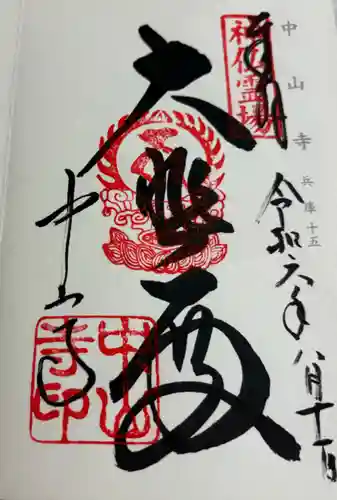 中山寺
兵庫十五
奉拝
神仏霊場
令和六年八月十一日
大悲殿
中山寺
中山寺印